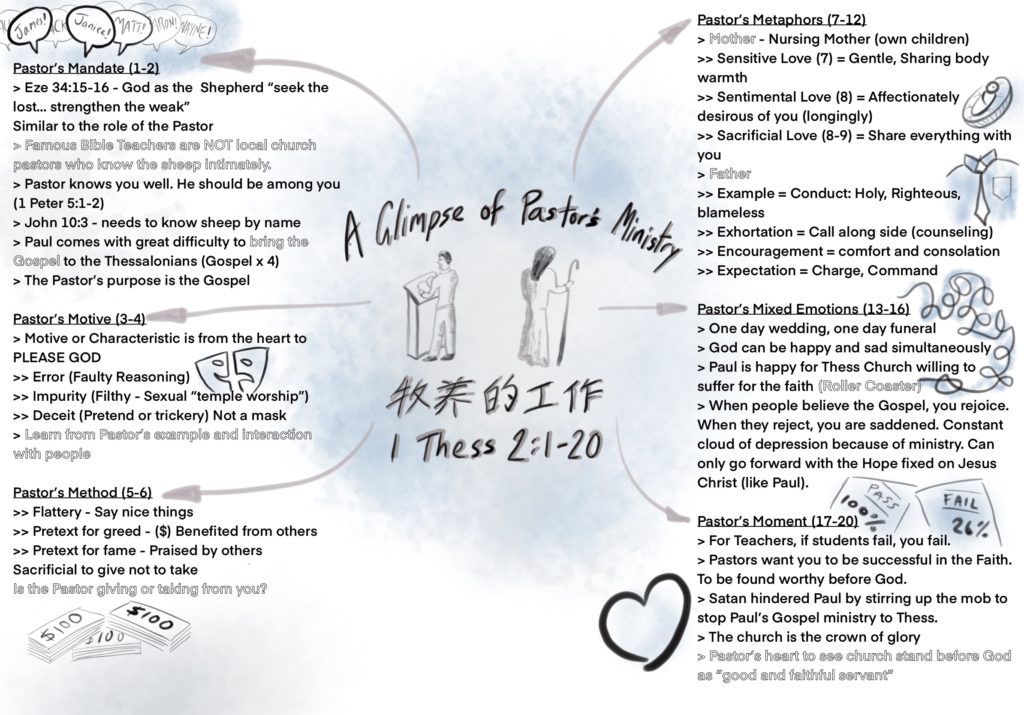 James!
Janice!
MATT!
WAYNE!
Pastor's Mandate (1-2)
> Eze 34:15-16 - God as the Shepherd "seek the
lost... strengthen the weak"
Similar to the role of the Pastor
> Famous Bible Teachers are NOT local church
pastors who know the sheep intimately.
> Pastor knows you well. He should be among you
(1 Peter 5:1-2)
> John 10:3 - needs to know sheep by name
> Paul comes with great difficulty to bring the
Gospel to the Thessalonians (Gospel x 4)
> The Pastor's purpose is the Gospel
Pastor's Motive (3-4)
> Motive or Characteristic is from the heart to
PLEASE GOD
>> Error (Faulty Reasoning)
>> Impurity (Filthy - Sexual "temple worship")
>> Deceit (Pretend or trickery) Not a mask
> Learn from Pastor's example and interaction
with people
Pastor's Method (5-6)
>> Flattery - Say nice things
>> Pretext for greed - ($) Benefited from others
>> Pretext for fame - Praised by others
Sacrificial to give not to take
Is the Pastor giving or taking from you?
$100
$100
$100
A Glimpse of Pastor's Ministry
牧养的工作
1 Thess 2:1-20
Pastor's Metaphors (7-12)
> Mother - Nursing Mother (own children)
>> Sensitive Love (7) = Gentle, Sharing body
warmth
>> Sentimental Love (8) = Affectionately
desirous of you (longingly)
>> Sacrificial Love (8-9) = Share everything with
you
> Father
>> Example = Conduct: Holy, Righteous,
blameless
>> Exhortation = Call along side (counseling)
>> Encouragement = comfort and consolation
>> Expectation = Charge, Command
Pastor's Mixed Emotions (13-16)
> One day wedding, one day funeral
> God can be happy and sad simultaneously
> Paul is happy for Thess Church willing to
suffer for the faith (Roller Coaster)
> When people believe the Gospel, you rejoice.
When they reject, you are saddened. Constant
cloud of depression because of ministry. Can
only go forward with the Hope fixed on Jesus
Christ (like Paul).
PASS
100%
FAIL
26%
Pastor's Moment (17-20)
> For Teachers, if students fail, you fail.
> Pastors want you to be successful in the Faith.
To be found worthy before God.
> Satan hindered Paul by stirring up the mob to
stop Paul's Gospel ministry to Thess.
> The church is the crown of glory
> Pastor's heart to see church stand before God
as "good and faithful servant"